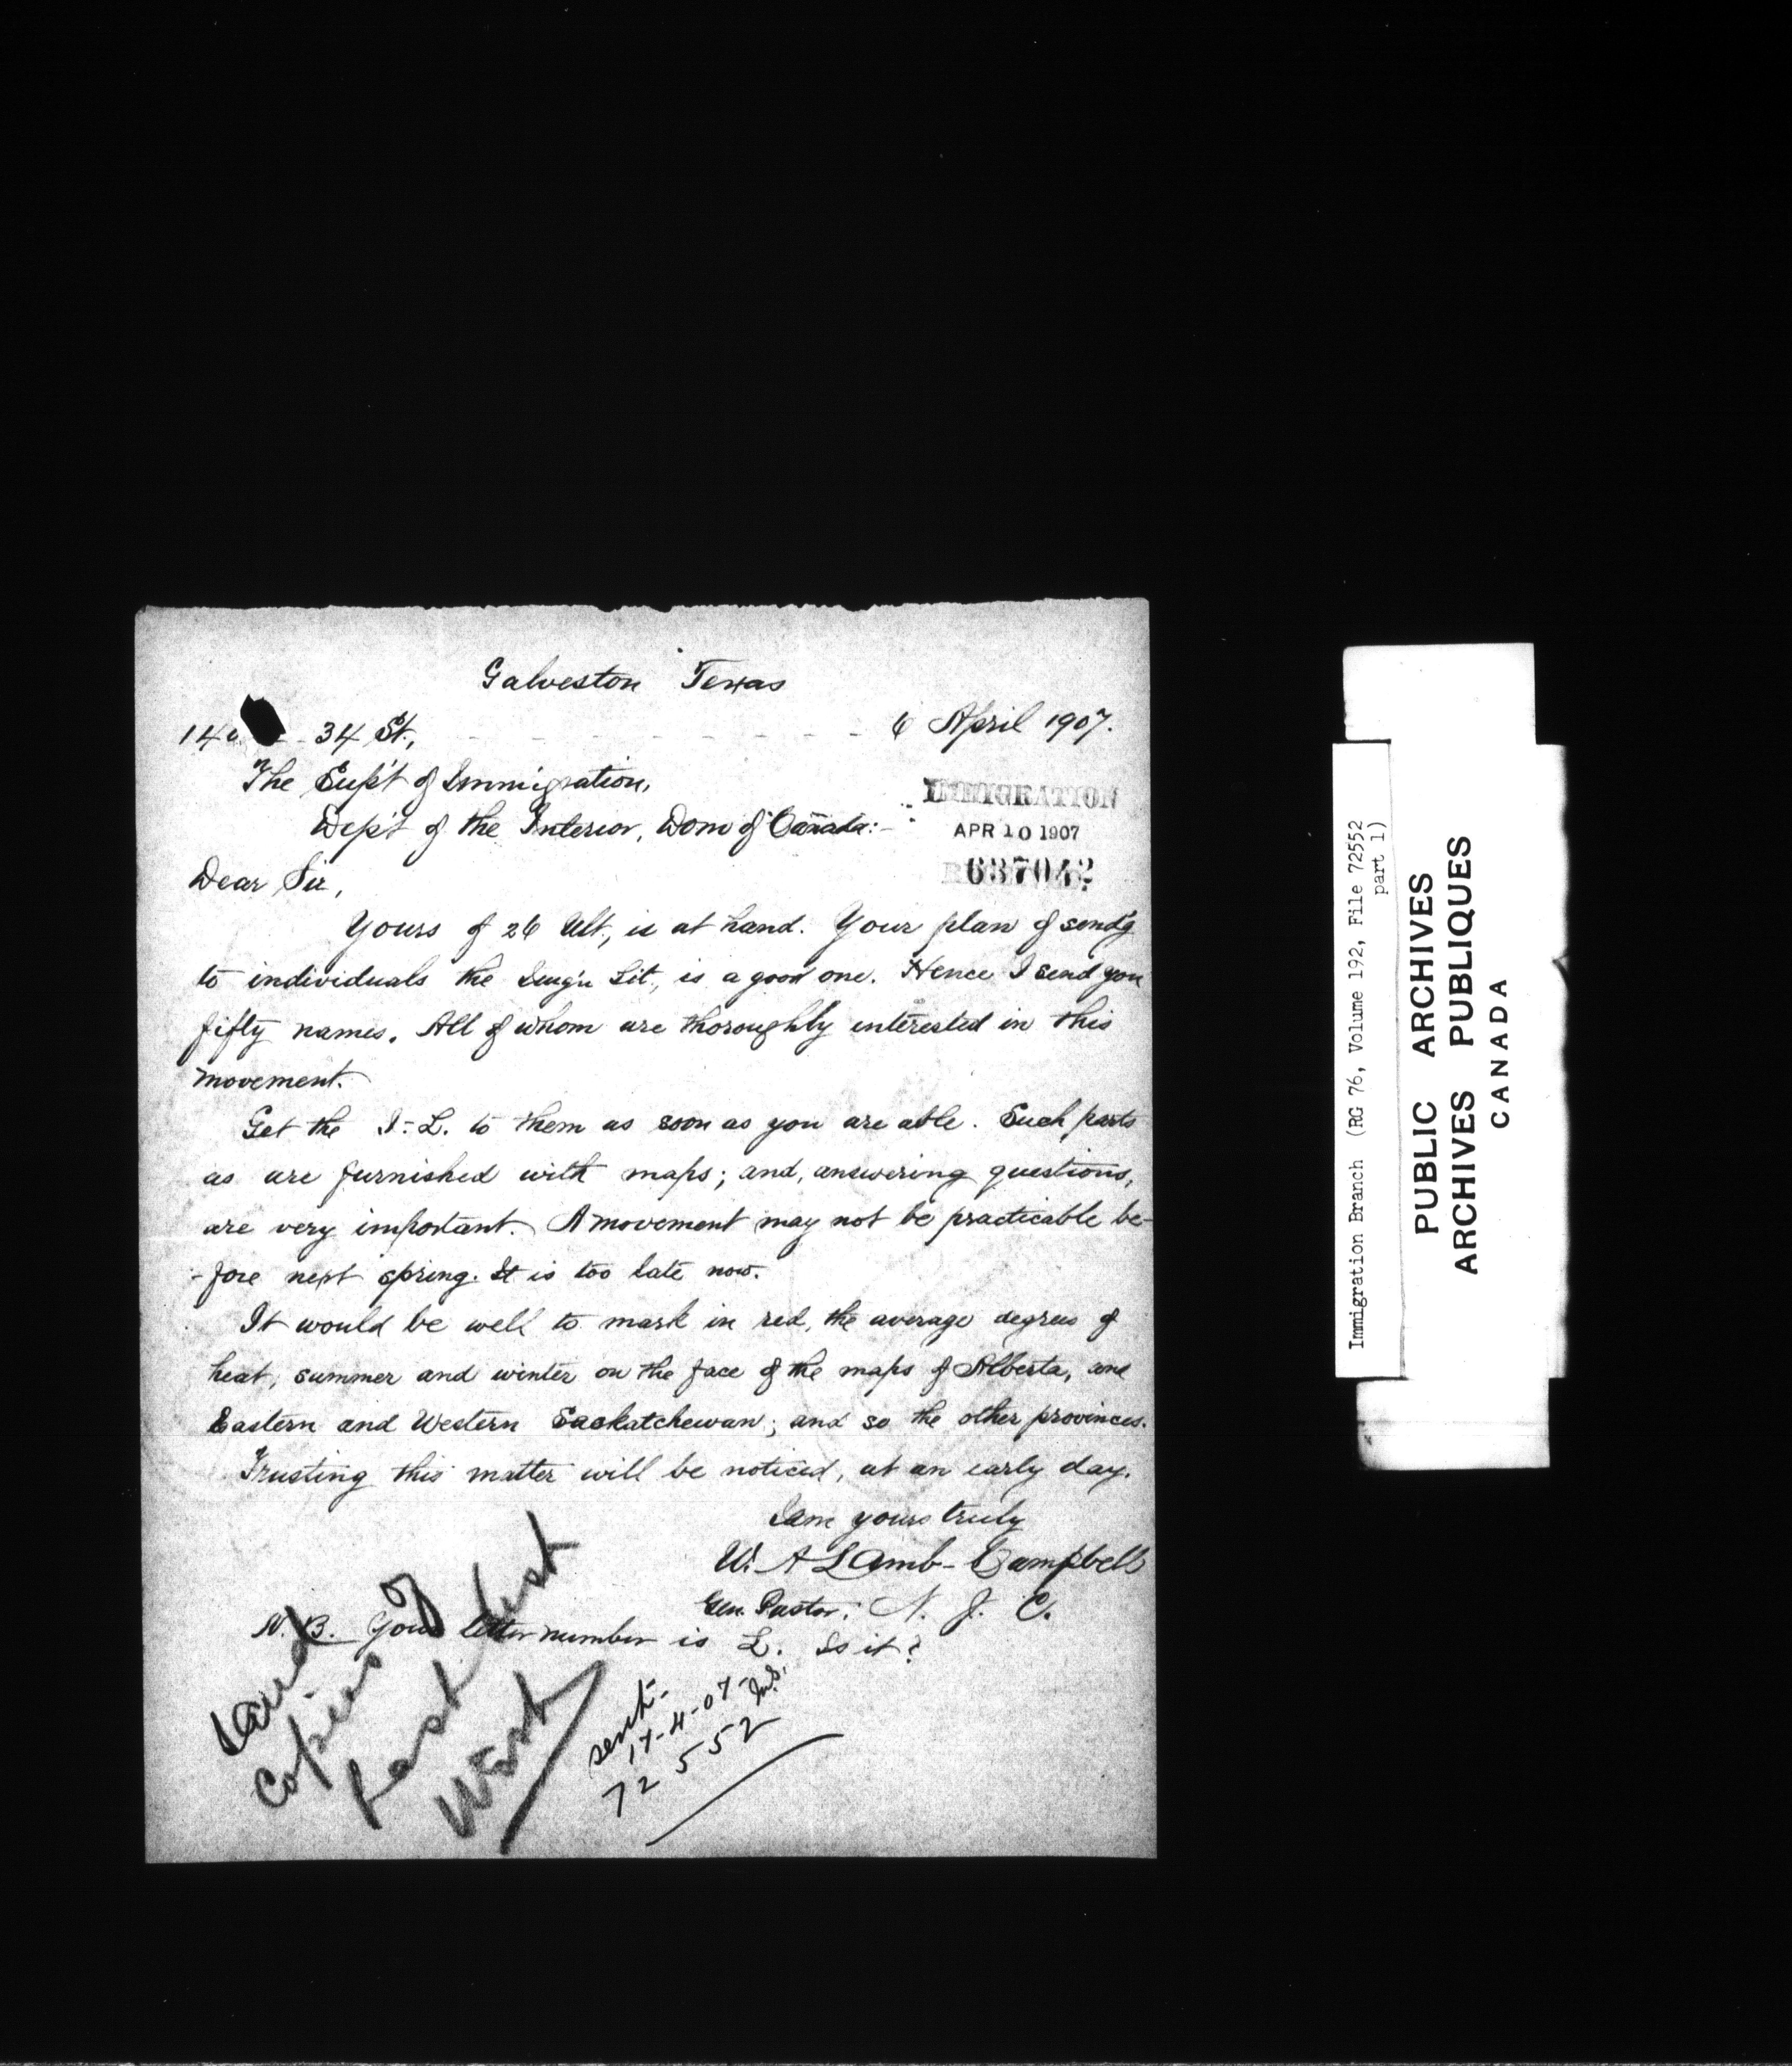 Galveston Texas
34 St., 6 April 1907.
The Sup't of Immigration,
Dep't of the Interior, Dom of Canada:-
IMMIGRATION
APR 10 1907
637042
Dear Sir,
Yours of 26 Ult., is at hand. Your plan of send'g
to individuals the Img'n Lit., is a good one. Hence I send you
fifty names. All of whom are thoroughly interested in this
movement.
Get the I-L. to them as soon as you are able. Such parts
as are furnished with maps; and, answering questions,
are very important. A movement may not be practicable be-
-fore next spring. It is too late now.
It would be well to mark in red, the average degrees of
heat, summer and winter on the face of the maps of Alberta, and
Eastern and Western Saskatchewan; and so the other provinces.
Trusting this matter will be noticed, at an early day.
I am yours truly
W. A Lamb-Campbell
Gen. Pastor, N. J. C.
N. B. Your letter number is L. Is it?
Send
Copies of
Last Best
West
sent-
17-4-07-
72552
Immigration Branch (RG 76, Volume 192, File 72552
part 1)
PUBLIC ARCHIVES
ARCHIVES PUBLIQUES
CANADA